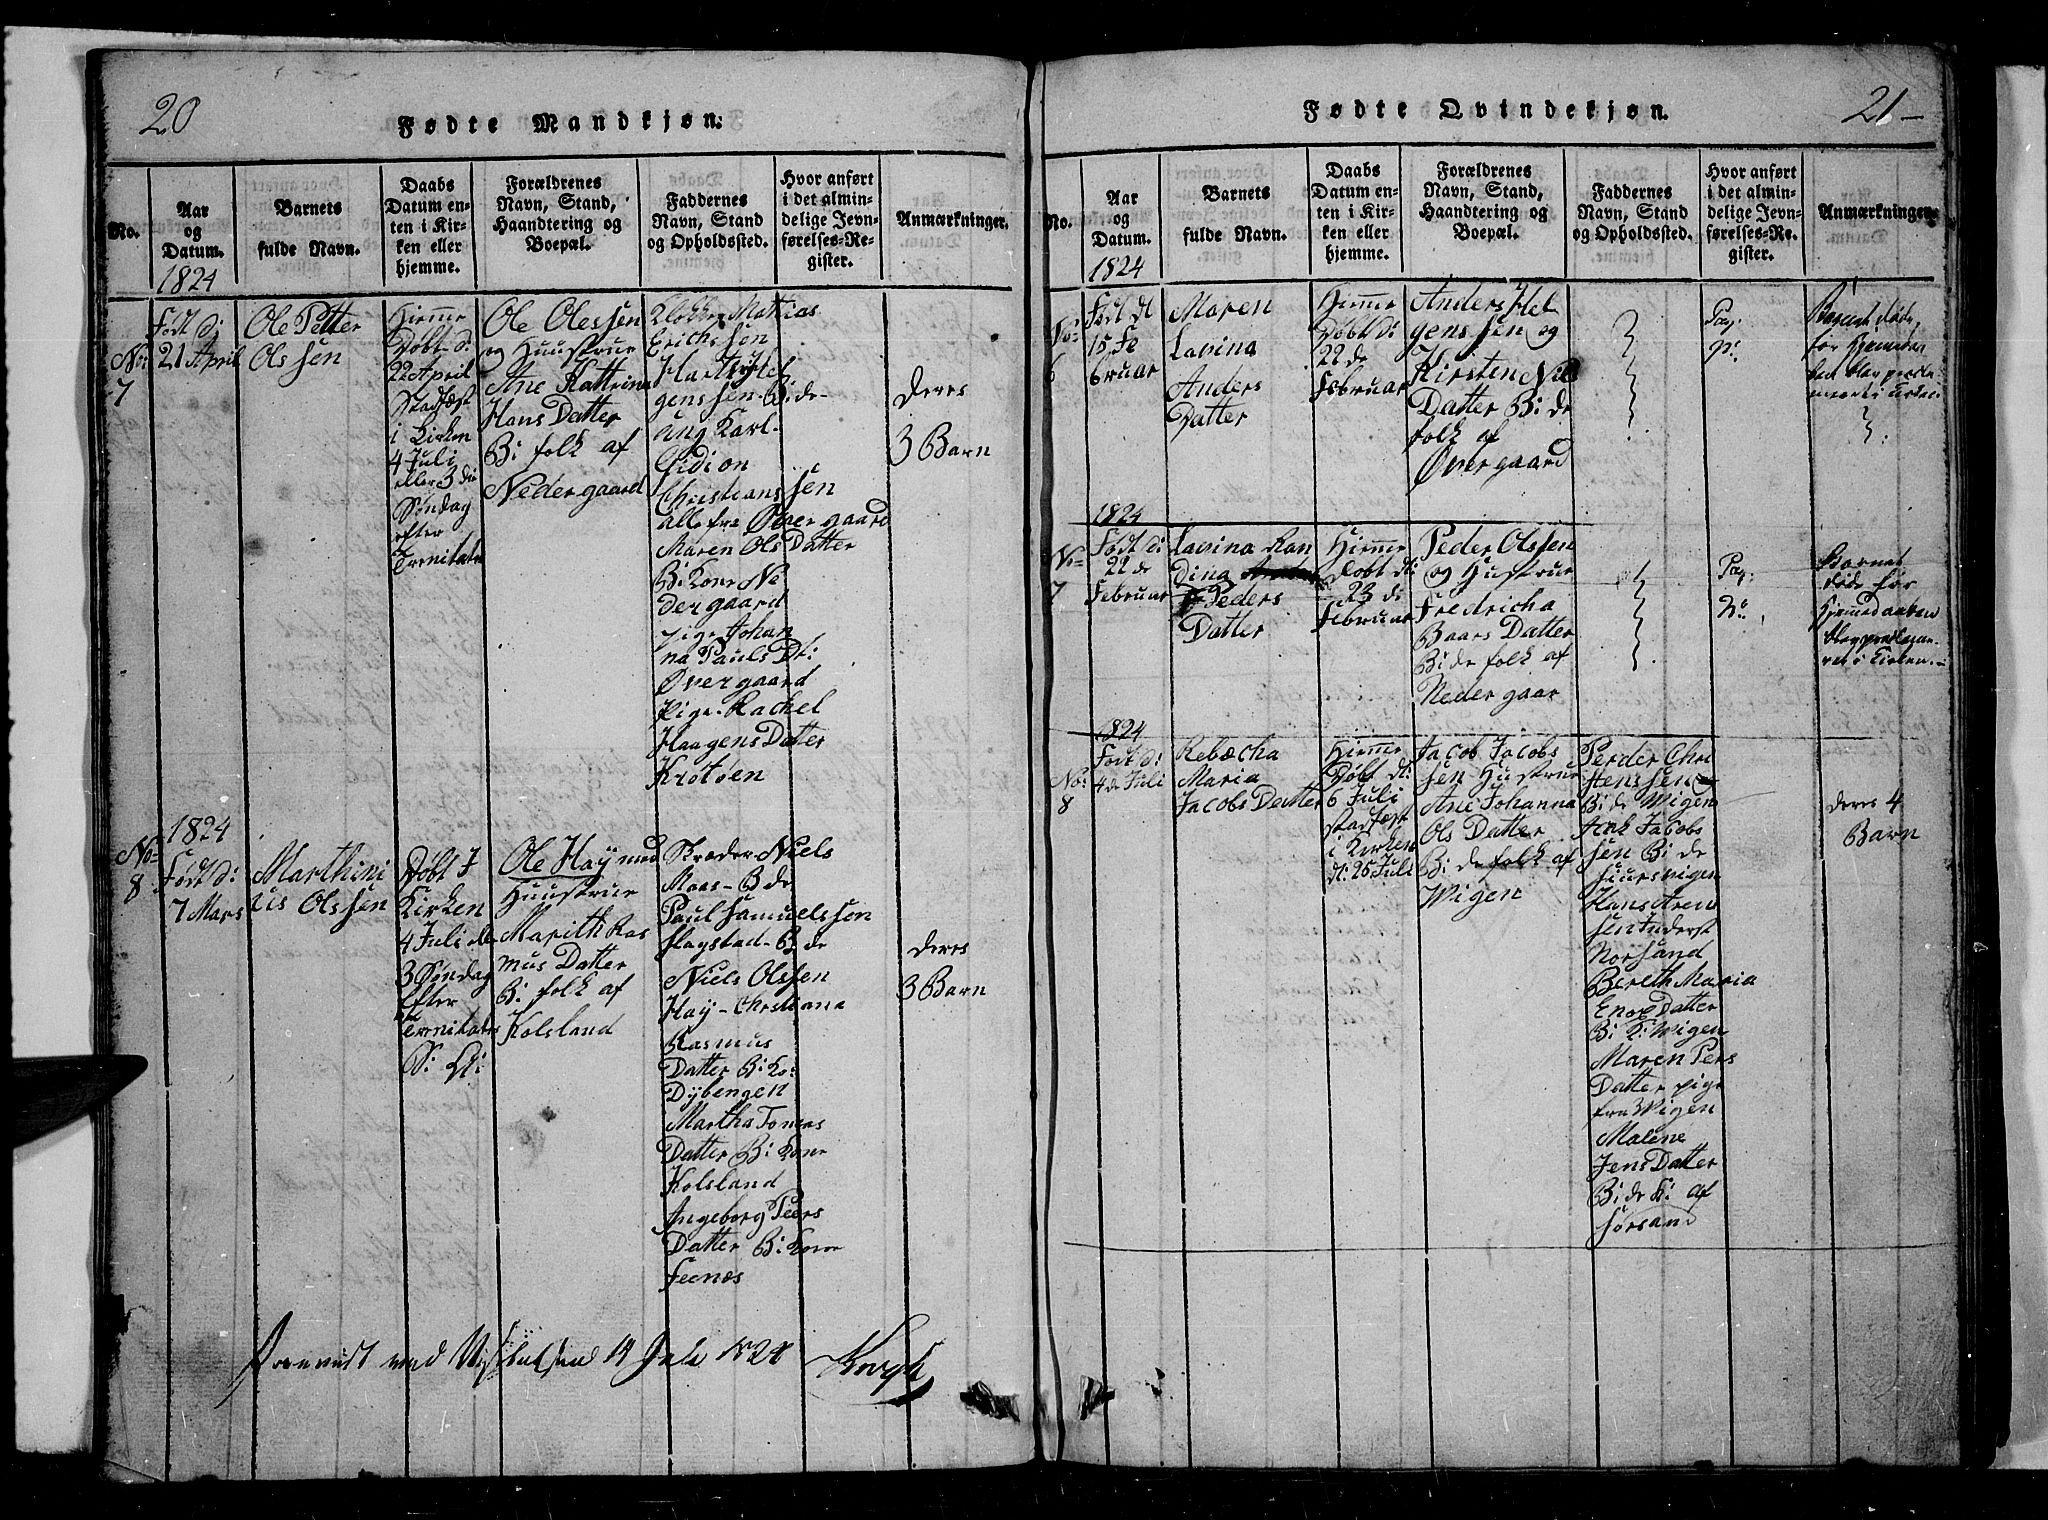 20
Fødte Mandkjøn.
No.
Aar
og
Datum.
1824
Barnets
fulde Navn.
Daabs
Datum en-
ten i Kir-
ken eller
hjemme.
Forældrenes
Navn, Stand,
Haandtering og
Boepæl.
Faddernes
Navn, Stand
og Opholdssted.
Hvor anført
i det almin-
delige Jevn-
førelses-Re-
gister.
Anmærkninger.
No:
7
Født d:
21 April
Ole Petter
Olssen
Hiemme
Døbt d:
22 April
Stadfæst
i Kirken
4 Juli
eller 3 die
Søndag
efter
Ole Olessen
og Huustrue
Ane Kattrina
Hans Datter
B: folk af
Nedergaard
Klokker Mathias
Erichssen
Hartvig Hel
genssen - B: de
ung Karl -
Gidion
Christianssen
alle fra Øvergaard
Maren Ols Datter
B: Kone Ne
dergaard
pige Johan
na Pauls Dt:
Øvergaard
Pige - Rachel
Haagens Datter
Krøtøen
deres
3 Barn
1824
No:
8
Født d:
7 Mars
Marthini
us Olssen
Døbt I
Kirken
4 Juli
3 Søndag
Efter
Ole Hay med
Huustrue
Marith Ras
mus Datter
B: folk af
Kolsland
Skræder Niels
Maas - B de
Paul Samuelssen
Slagstad - B de
Niels Olssen
Hay - Christiana
Rasmus
Datter B: Ko:
Dybengen
Martha Tomas
Datter B: Kone
Kolsland
Angeborg Peers
Datter B: Kone
deres
3 Barn
14 Juli 1824
21 -
Fødte Qvindekjøn.
No.
Aar
og
Datum.
1824
Barnets
fulde Navn.
Daabs
Datum en-
ten i Kir-
ken eller
hjemme.
Forældrenes
Navn, Stand,
Haandtering og
Boepæl.
Faddernes
Navn, Stand
og Opholdssted.
Hvor anført
i det almin-
delige Jevn-
førelses-Re-
gister.
Anmærkninger.
No:
6
Født d:
15 Fe
bruar
Maren
Lavina
Anders
Datter
Hiemme
Døbt d:
22 de
Februar
Anders Hel
genssen og
Kirsten Nils
Datter B: de
folk af
Øvergaard
Pag:
No:
Barnet døde
før
1824
No:
7
Født d:
22 de
Februar
Lavina Ran
dina
Peders
Datter
Hiemme
døbt d:
23 de
Februar
Peder Olssen
og Hustrue
Fredricha
Baars Datter
B: de folk af
Nedergaar
Pag:
No:
Barnet
døde før
Hiemedaaben
blev proclame-
ret i Kirken. -
1824
No:
8
Født d:
4 de Juli
Rebæcha
Maria
Jacobs Datter
Hiemme
Døbt d:
6 Juli
stadfæst
i Kirken
d: 25 Juli
Jacob Jacobs
sen Hustrue
Ane Johanna
Ols Datter
B: de folk af
Wigen
Perder Chri
stenssen
B: de Wigen
Jacobs
sen B: de
Hans Aren
sen Inderst
Norsand
Bereth Maria
Enox Datter
B: K: Wigen
Maren Pers
Datter pige
fra Wigen
Malene
Jens Datter
B: de K: af
Forsand
deres 4
Barn